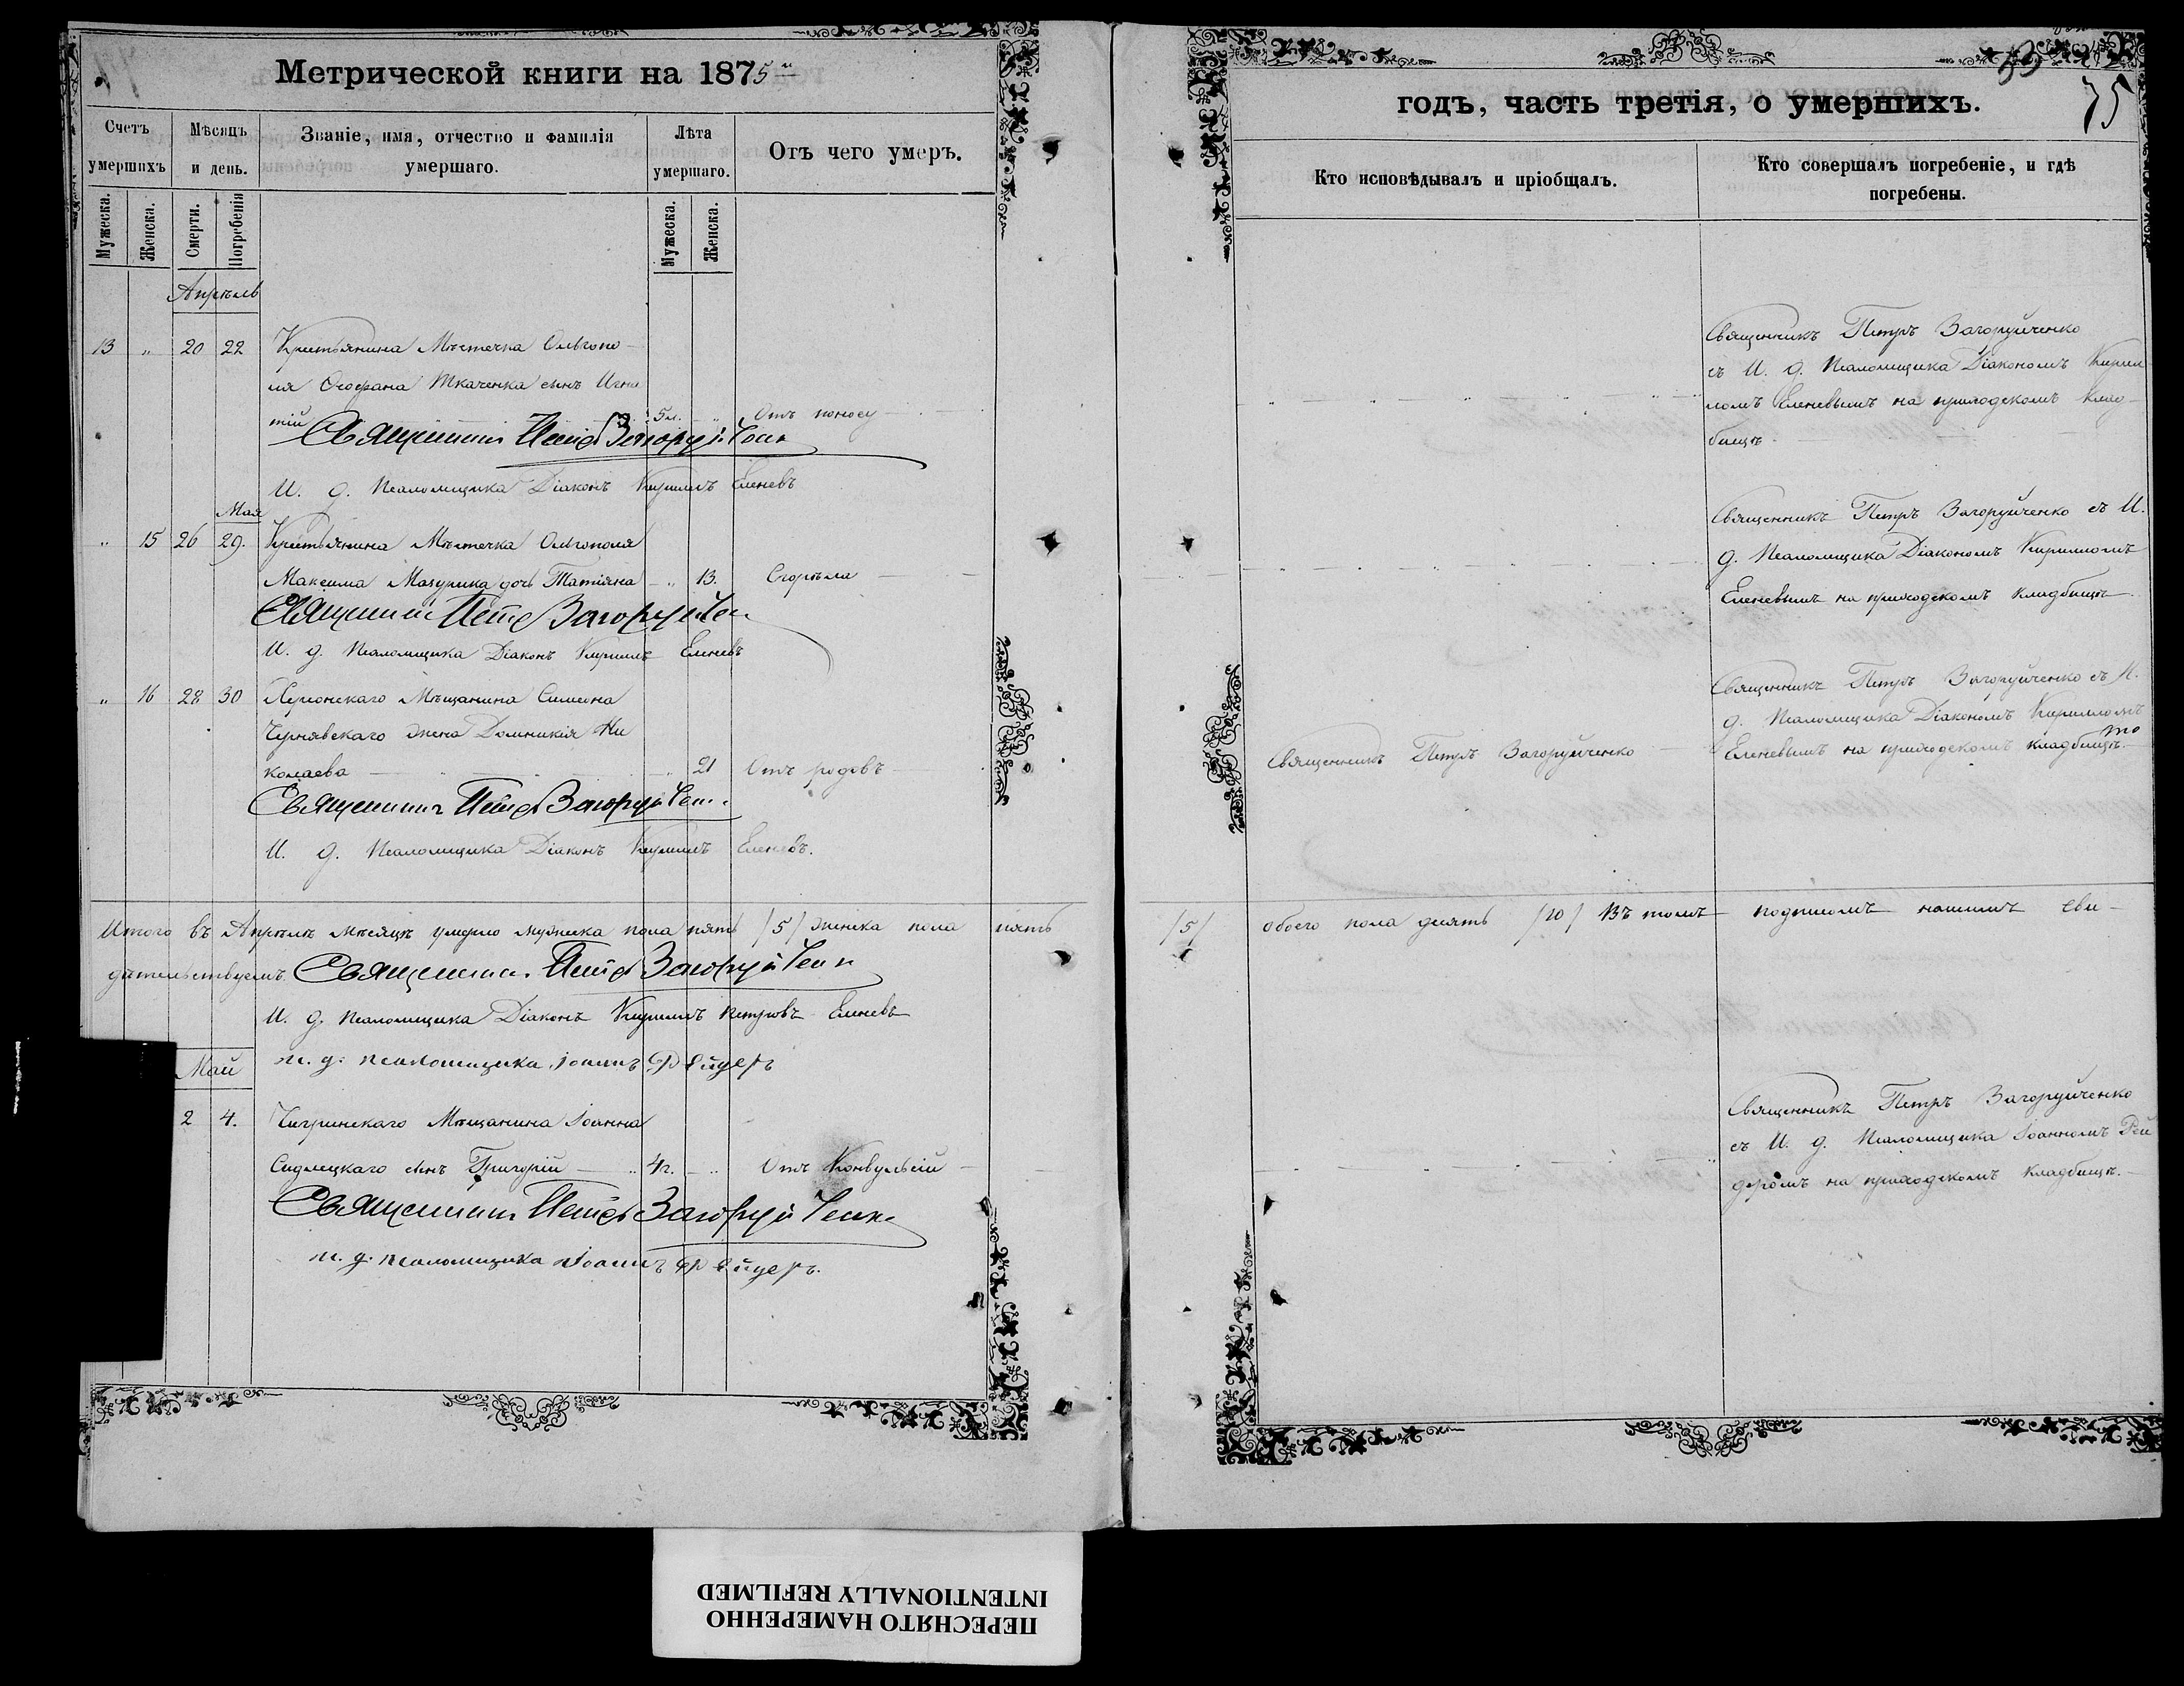 Метрической книги на 1875й
годъ, часть третія, о умершихъ.
75
Счетъ умершихъ
Мѣсяцъ и день.
Званіе, имя, отчество и фамилія умершаго.
Лѣта умершаго.
Отъ чего умеръ.
Кто исповѣдывалъ и пріобщалъ.
Кто совершалъ погребеніе, и гдѣ погребены.
Мужеска.
Женска.
Смерти.
Погребенія
Мужеска.
Женска.
Апрѣль
13 " 20 22 Крестьянина Мѣстечка Ольгопо-
ля Ѳеофана Ткаченка сынъ Игна
тій 5л. " Отъ поносу
Священникъ Петръ Загоруйченко
И. д. Псаломщика Діаконъ Кириллъ Еленевъ
Священникъ Петръ Загоруйченко
съ И. д. Псаломщика Діакономъ Кирил
ломъ Еленевымъ на приходскомъ клад-
бищѣ.
Мая
" 15 26 29. Крестьянина Мѣстечка Ольгополя
Максима Мазурика дочь Татіяна " 13. Сгорѣла
Священникъ Петръ Загоруйченко
И. д. Псаломщика Діаконъ Кириллъ Еленевъ
Священникъ Петръ Загоруйченко съ И.
д. Псаломщика Діакономъ Кирилломъ
Еленевымъ на приходскомъ кладбищѣ
" 16 28 30 Херсонскаго Мѣщанина Симеона
Чернявскаго жена Домникія Ни
колаева " 21 Отъ родовъ
Священникъ Петръ Загоруйченко
И. д. Псаломщика Діаконъ Кириллъ Еленевъ.
Священникъ Петръ Загоруйченко
Священникъ Петръ Загоруйченко съ И.
д. Псаломщика Діакономъ Кирилломъ
Еленевымъ на приходскомъ кладбищѣ.
Итого въ Апрѣлѣ мѣсяцѣ умерло мужеска пола пять /5/ женска пола пять /5/ обоего пола десять /10/ Въ томъ подписомъ нашимъ сви-
дѣтельствуемъ. Священникъ Петръ Загоруйченко
И. д. Псаломщика Діаконъ Кириллъ Петровъ Еленевъ
и. д. псаломщика Іоаннъ Рейдеръ
Май
2 4. Чигринскаго Мѣщанина Іоанна
Сидлецкаго сынъ Григорій " 4г. " Отъ Конвульсій
Священникъ Петръ Загоруйченко
и. д. псаломщика Іоаннъ Рейдеръ.
Священникъ Петръ Загоруйченко
съ И. д. Псаломщика Іоанномъ Рей
деромъ на приходскомъ кладбищѣ.
ПЕРЕСНЯТО НАМЕРЕННО
INTENTIONALLY REFILMED